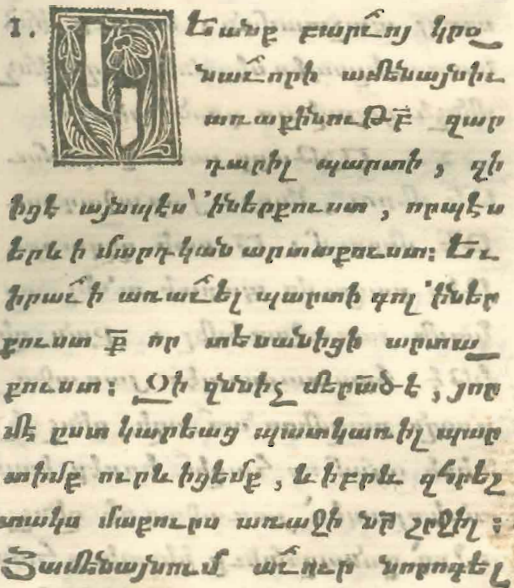 1. ԿԵանք բարւոյ կրօ_
նաւորի ամենայնիւ
առաքինութբ̃ զար
դարիլ պարտի, զի
իցէ այնպէս ՚ի ներքուստ, որպէս
երևի մարդկան արտաքուստ։ Եւ
իրաւի առաւել պարտի գոլ ՚ի ներ
քուստ ք̃ որ տեսանիցի արտա_
քուստ։ Զի զննիչ մեր ա̃ծ է, յոր
մէ ըստ կարեաց պատկառիլ պար
տիմք ուր և իցեմք, և իբրև զհրեշ
տակս մաքուրս առաջի նր̃ շրջիլ։
Յամենայնում աւուր նորոգել